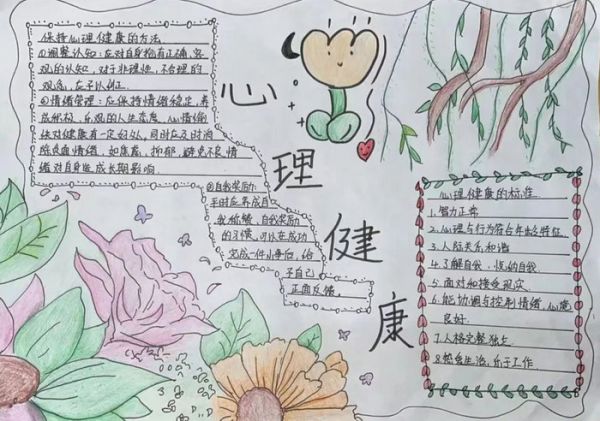 心
理
健
康
保持心理健康的方法
①调整认知:应对自身抱有正确、客
观的认知,对于非理性,不合理的
观念,应予以纠正.
②情绪管理:应保持情绪稳定,养
成积极、乐观的人生态度、心情愉
快对健康有一定好处,同时应及时消
除负面情绪,如焦虑,抑郁,避免不良情
绪对自身造成长期影响.
③自我奖励:
平时应养成自
我奖励
的习惯,可以在成功
完成一件小事后,给
予自己
正面反馈.
心理健康的标准
1.智力正常
2.心理与行为符合年龄特征.
3.人际关系和谐
4.了解自我、悦纳自我.
5.面对和接受现实
6.能协调与控制情绪,心境
良好.
7.人格完整独立
8.热爱生活,乐于工作